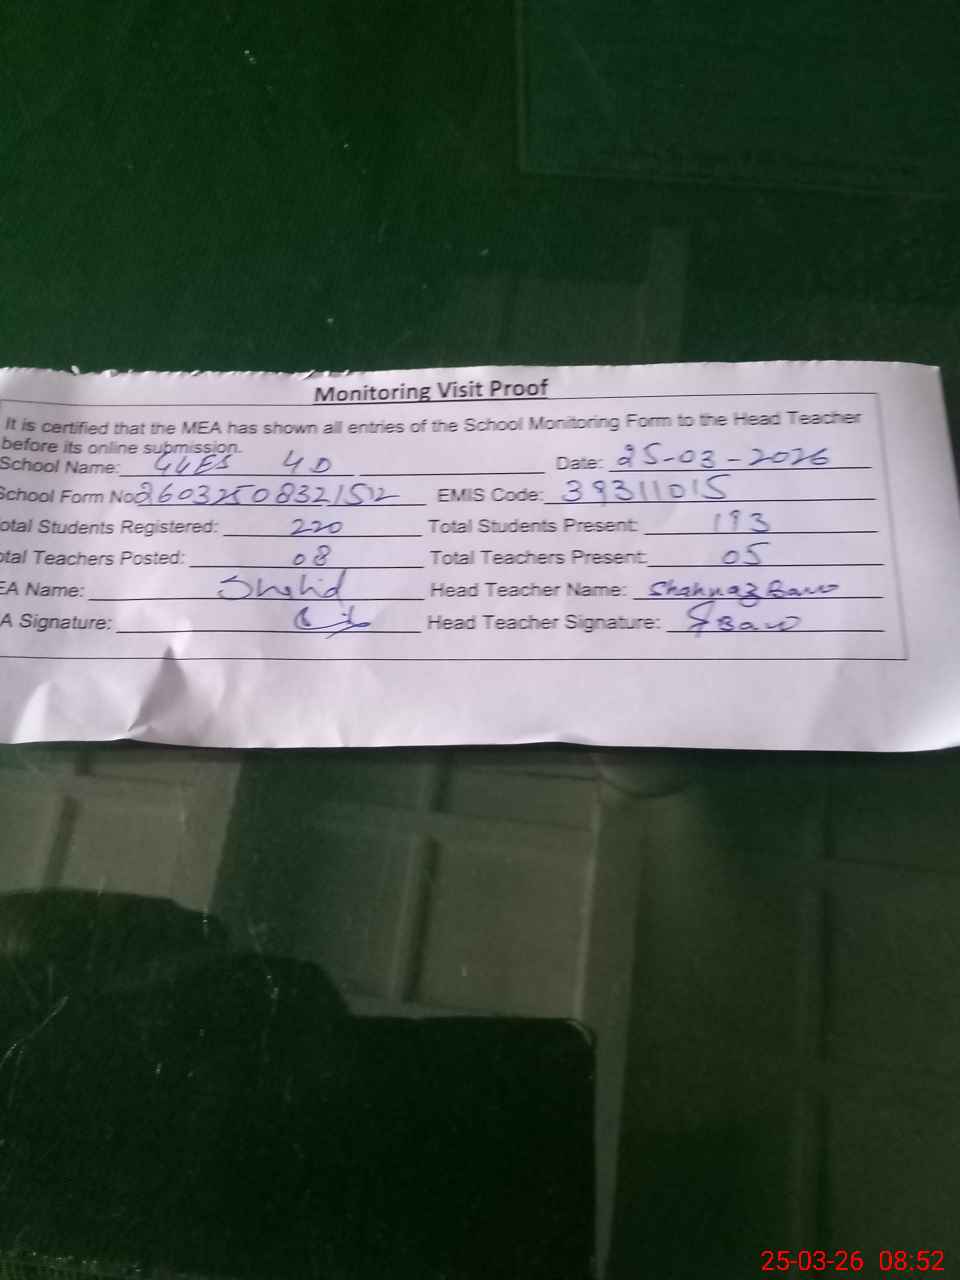 Monitoring Visit Proof
It is certified that the MEA has shown all entries of the School Monitoring Form to the Head Teacher
before its online submission.
School Name: GGES 4D Date: 25-03-2026
School Form No 26032508321512 EMIS Code: 39311015
otal Students Registered: 220 Total Students Present: 193
otal Teachers Posted: 08 Total Teachers Present: 05
EA Name: Shahid Head Teacher Name: Shahnaz Bano
A Signature: Head Teacher Signature: SBano
25-03-26 08:52